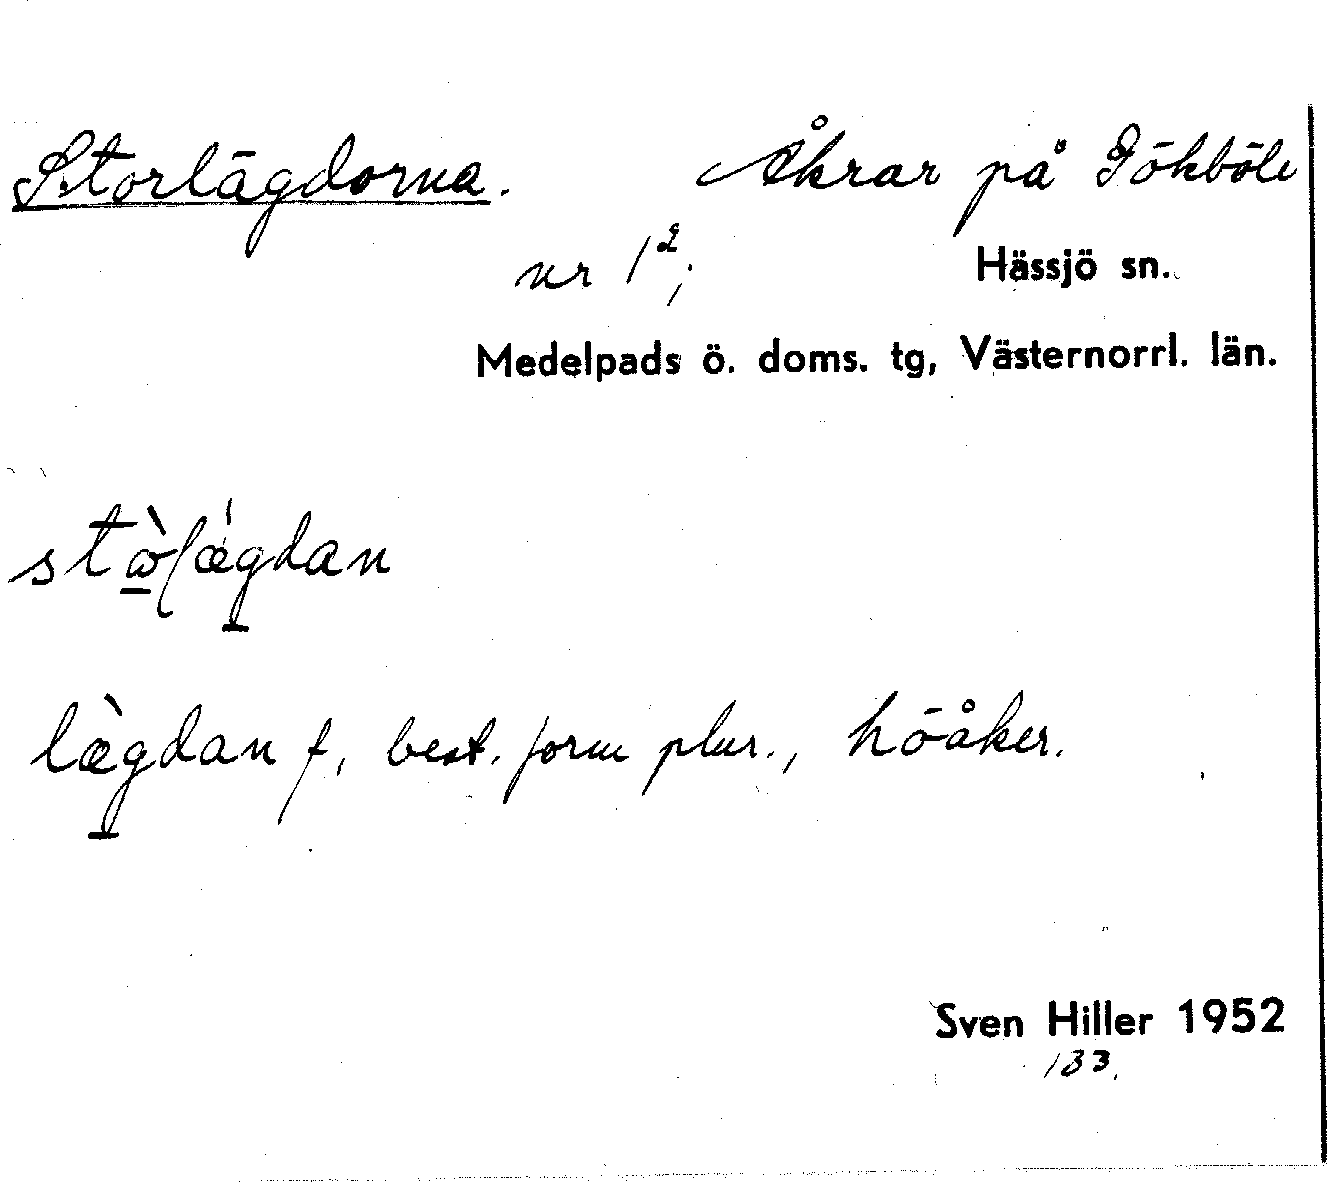 Storlägdorna. Åkrar på Gökböle
nr 1²;
Hässjö sn.
Medelpads ö. doms. tg, Västernorrl. län.
lægdan f, best. form plur., höåker.
Sven Hiller 1952
133.